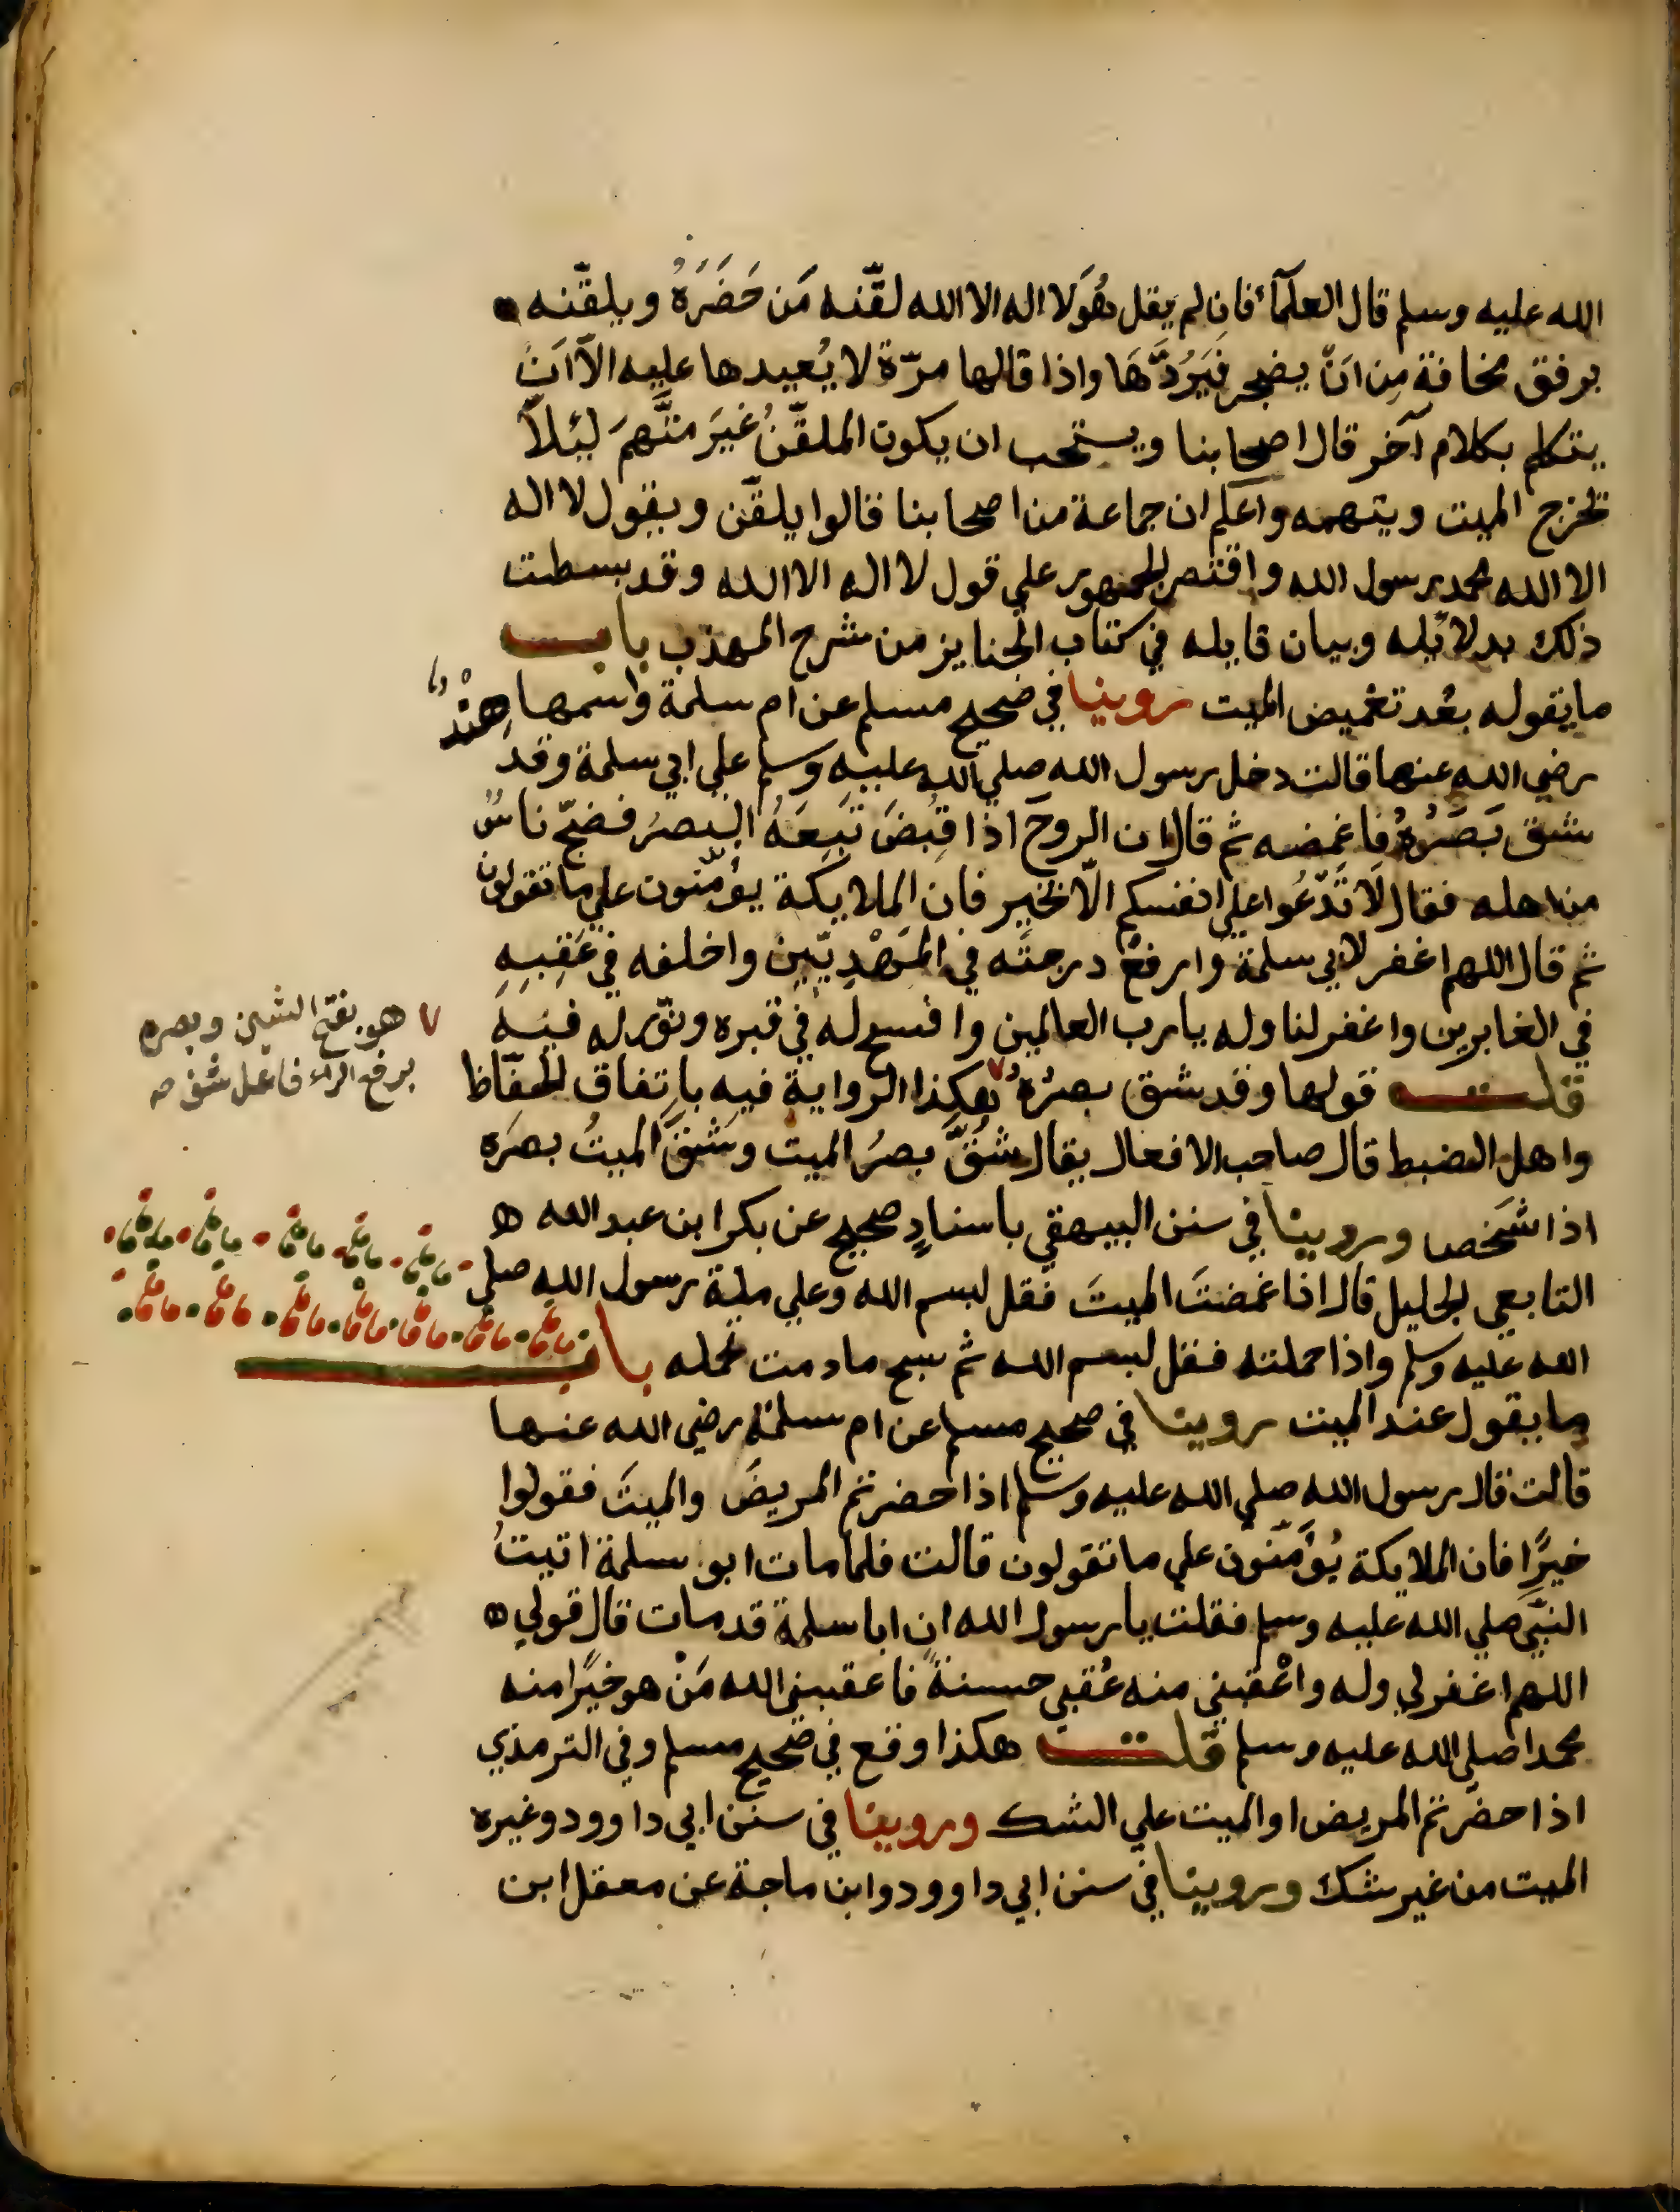 الله عليه وسلم قال العلمآء فان لم يقل هُوَ لا اله الا الله لقّنه مَن حَضَرَهُ ويلقّنه
برفق مخافة مِن انّ يضجر فَيَرُدَّهَا واذا قالها مرّة لا يُعيدها عليه الّا انْ
يتكلم بكلام آخر قال اصحابنا ويستحب ان يكون الملقّنُ غيَرَ متَّهمَ ليَلّا
تحرج الميت ويتهمه واعلم ان جماعة من اصحابنا قالوا يلقّن ويقول لا اله
الا الله محمد رسول الله واقتصر الجمهور علي قول لا اله الا الله وقد بسطت
ذلك بدلائله وبيان قايله في كتاب الجنايز من شرح المهذب باب
ما يقوله بعْد تغميض الميت روينا في صحيح مسلم عن ام سلمة واسمها هِنْدٌ
رضي الله عنها قالت دخل رسول الله صلي الله عليه وسلم علي ابي سلمة وقد
شق بَصَرُهُ فاغمضه ثم قال ان الروحَ اذا قبُضَ تَبِعَهُ البصرُ فضجّ ناسٌ
من اهله فقال لَا تَدْعُوا علي انفسكم الّا بخير فان الملايكة يؤمّنون علي ما تقولون
ثم قال اللهم اغفر لابي سلمة وارفعْ درجتَه في المَهْدِيّيِن واخلفه في عَقِبِهِ
في الغابرين واغفر لنا وله يا رب العالمين وافسح له في قبره ونوّر له فيه
قلت قولها وقد شق بصرُهُ هكذا الرواية فيه باتفاق الحفّاظ
٧ هو بفتح الشين وبصره
برفع الراء فاعل شق صـ
واهل الضبط قال صاحب الافعال يقال شَقَّ بصرُ الميت وشَقَّ الميتُ بصرَه
اذا شَخَص وروينا في سنن البيهقي باسنادٍ صحيح عن بكر ابن عبد الله ه
التابعي الجليل قال اذا غمضتَ الميتَ فقل بسم الله وعلي ملة رسول الله صلي
الله عليه وسلم واذا حملته فقل بسم الله ثم سبح ما دمت تحمله باب
ما يقول عند الميت روينا في صحيح مسلم عن ام سلمة رضي الله عنها
قالت قال رسول الله صلي الله عليه وسلم اذا حضرتم المريضَ والميتَ فقولوا
خيرًا فان الملايكة يُؤَمّنون علي ما تقولون قالت فلما مات ابو سلمة اتيتُ
النبّي صلي الله عليه وسلم فقلت يا رسول الله ان ابا سلمة قد مات قال قولي ه
اللهم اغفر لي وله واعْقبني منه عُقبي حسنةً فاعقبني الله مَنْ هو خيرًا منه
محمدا صلي الله عليه وسلم قلت هكذا وقع في صحيح مسلم وفي الترمذي
اذا حضرتم المريض او الميت علي الشك وروينا في سنن ابي داوود وغيره
الميت من غير شك وروينا في سنن ابي داوود وابن ماجة عن معقل ابن